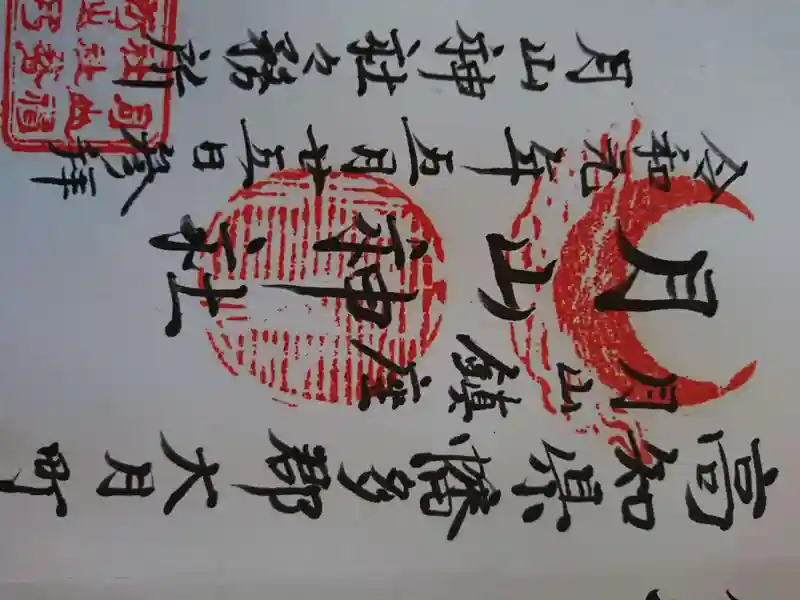 高知県幡多郡大月町
月山鎮座
月山神社
令和元年五月廿五日参拝
月山神社々務所